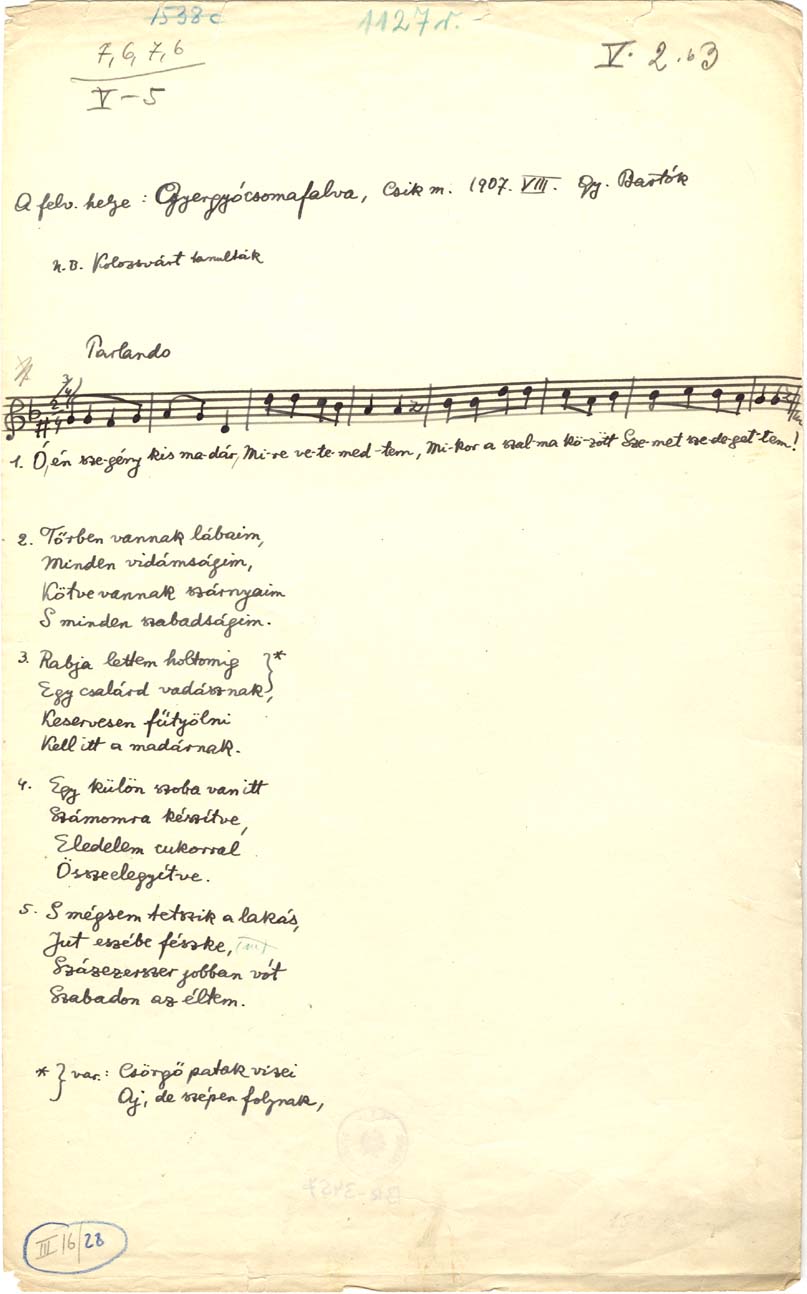 1538c
1127r.-
7, 6, 7, 6
V-5
V. 2.b3
A felv. helye: Gyergyócsomafalva, Csik m. 1907. VIII. Gy. Bartók
N.B. Kolozsvárt tanulták
Parlando
1. Ó, én sze-gény kis ma-dár, Mi-re ve-te-med-tem, Mi-kor a szal-ma kö-zött Sze-met sze-de-get-tem!
2. Tőrben vannak lábaim,
Minden vidámságim,
Kötve vannak szárnyaim
S minden szabadságim.
3. Rabja lettem holtomig }*
Egy csalárd vadásznak,
Keservesen fütyölni
Kell itt a madárnak.
4. Egy külön szoba van itt
Számomra készítve,
Eledelem cukorral
Összeelegyítve.
5. S mégsem tetszik a lakás,
Jut eszébe fészke,
Százezerszer jobban vót
Szabadon az éltem.
* } var.: Csörgő patak vizei
Aj, de szépen folynak,
III 16/28